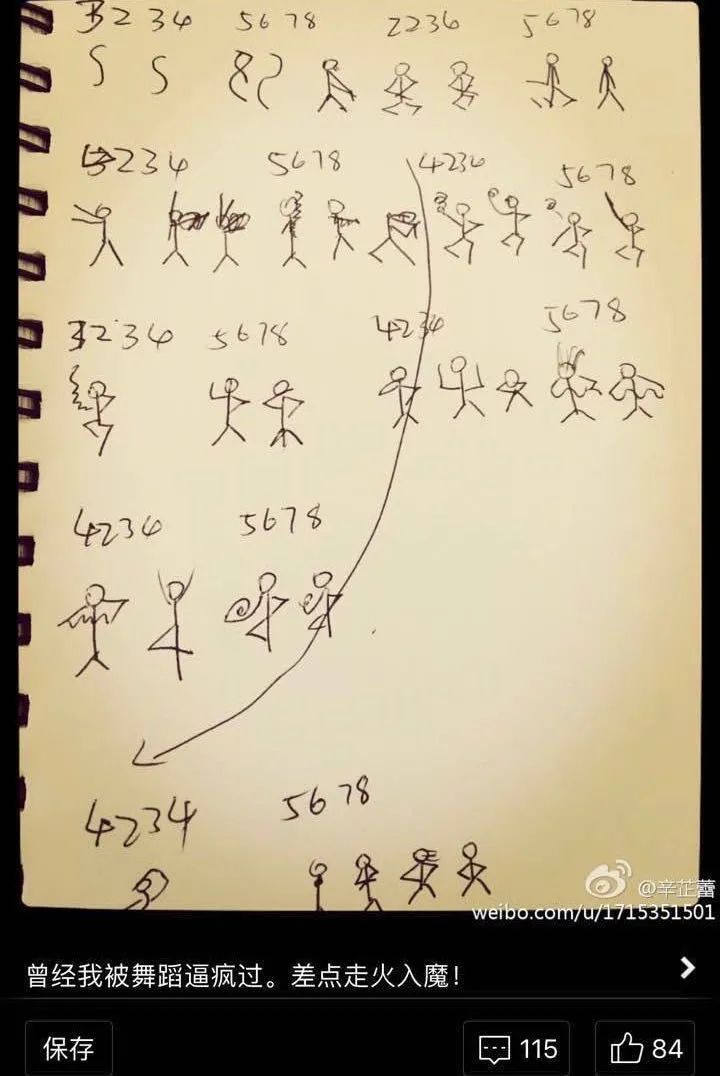 3234 5678 2236 5678
5234 5678 4234 5678
3234 5678 4234 5678
4234 5678
4234 5678
@辛芷蕾
weibo.com/u/1715351501
曾经我被舞蹈逼疯过。差点走火入魔！
保存 115 84